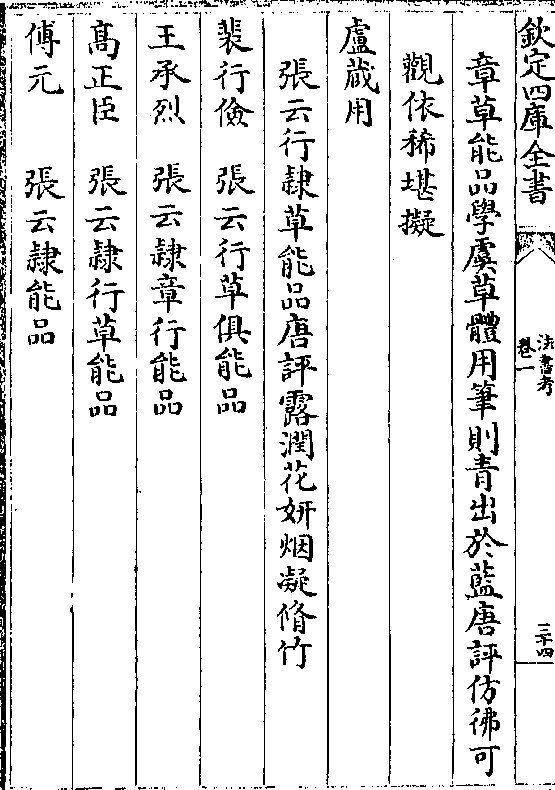 欽定四庫全書
法書考
卷一
三十四
章草能品學虞草體用筆則青出於藍唐評仿彿可
觀依稀堪擬
盧蔵用
張云行隸草能品唐評露潤花妍烟凝脩竹
裴行儉　張云行草俱能品
王承烈　張云隸章行能品
髙正臣　張云隸行草能品
傅元　張云隸能品